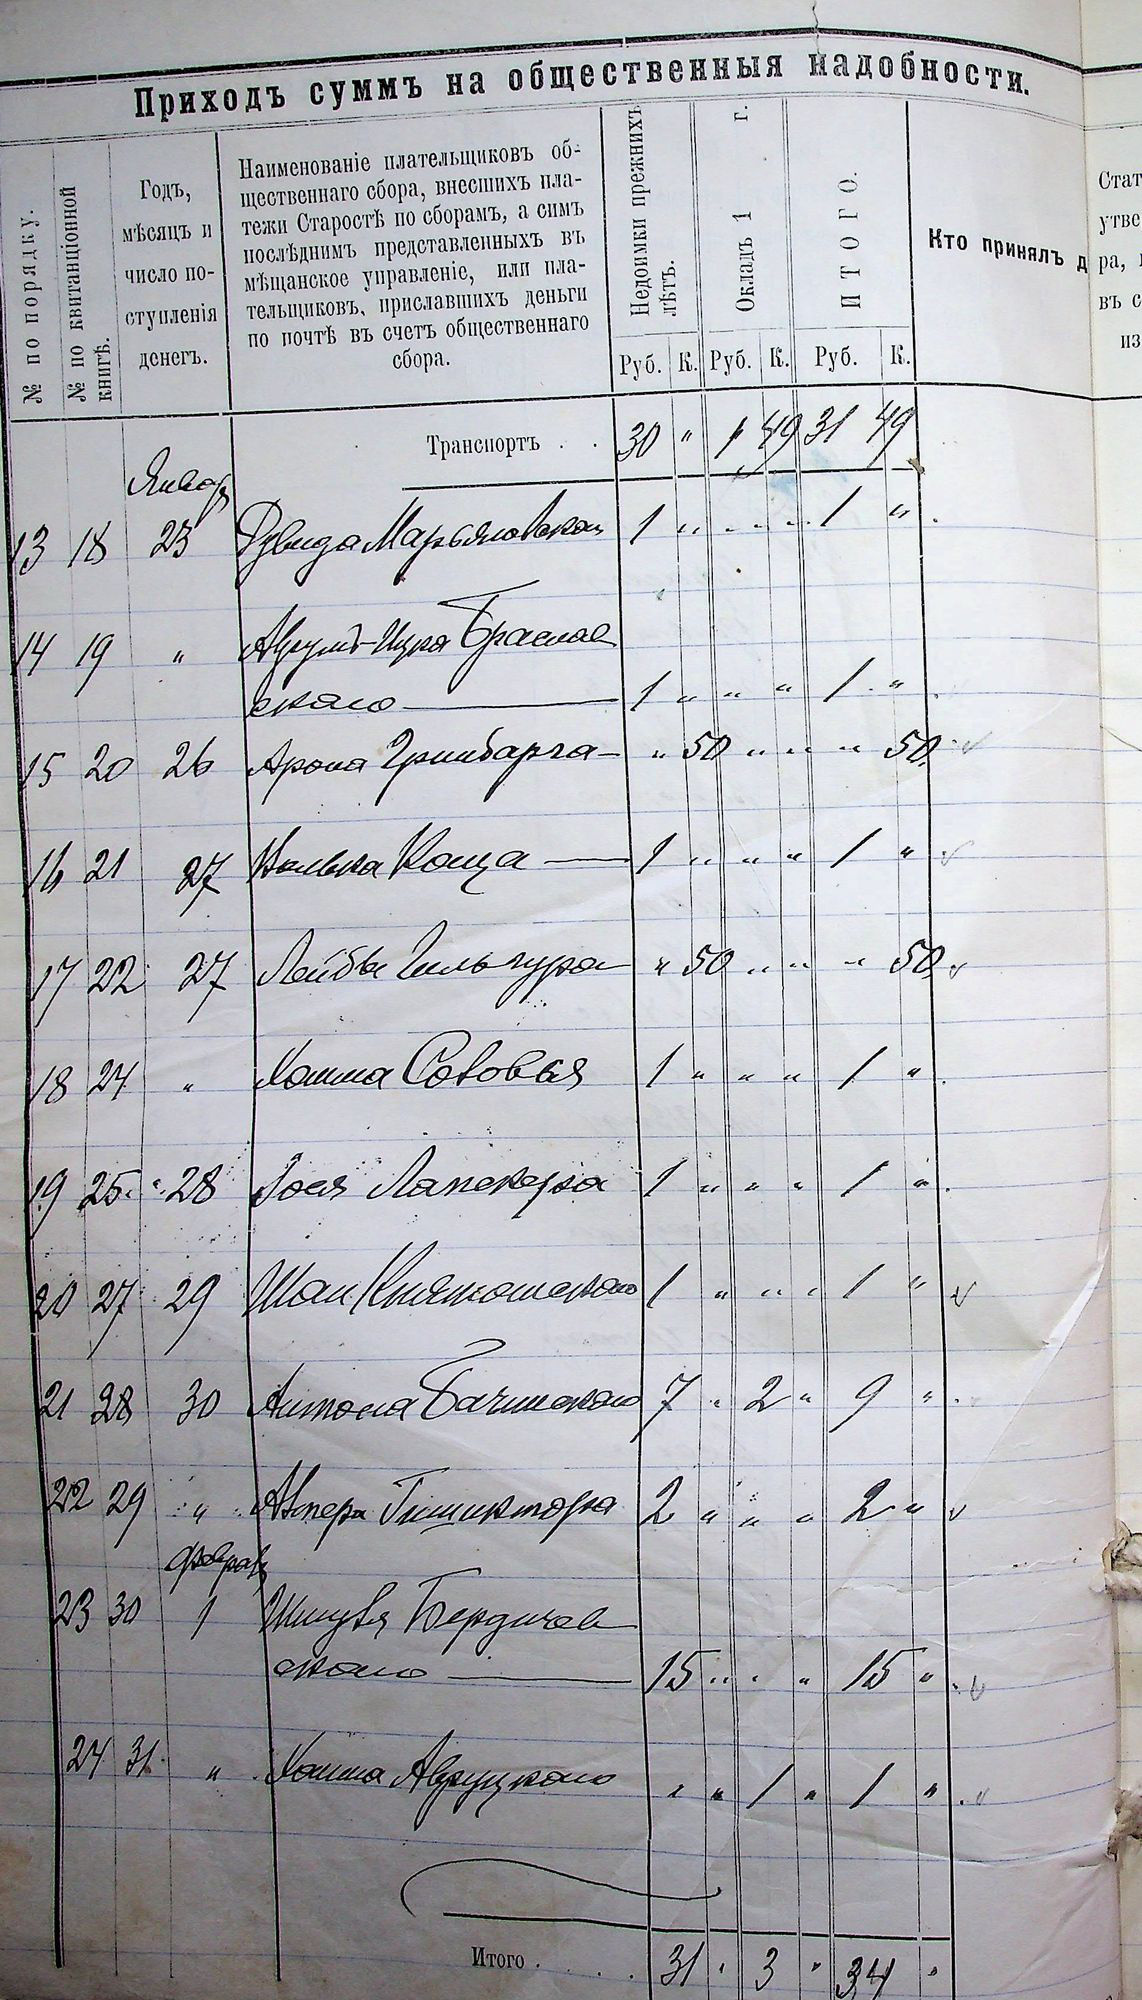 Приходъ суммъ на общественныя надобности.
№ по порядку.
№ по квитанціонной книгѣ.
Годъ,
мѣсяцъ и
число по-
ступленія
денегъ.
Наименованіе плательщиковъ об-
щественнаго сбора, внесшихъ пла-
тежи Старостѣ по сборамъ, а симъ
послѣднимъ представленныхъ въ
мѣщанское управленіе, или пла-
тельщиковъ, приславшихъ деньги
по почтѣ въ счетъ общественнаго
сбора.
Недоимки прежнихъ лѣтъ.
Окладъ 1 г.
ИТОГО.
Кто принялъ д
Руб. К. Руб. К. Руб. К.
Транспортъ . . 30 " 1 49 31 49
Январь
13 18 23 Марьяновскаго 1 " " " 1 "
14 19 " Браслав
скаго 1 " " " 1 "
15 20 26 Арона Гринбарга " 50 " " " 50
16 21 27 Каца 1 " " " 1 "
17 22 27 Лейбы " 50 " " " 50
18 24 " Хаима 1 " " " 1 "
19 25 " 28 Лапскера 1 " " " 1 "
20 27 29 1 " " " 1 "
21 28 30 Антона Бачинскаго 7 " 2 " 9 "
22 29 " 2 " " " 2 "
Февраль
23 30 1 Бердичев
скаго 15 " " " 15 "
24 31 " Хаима Авруцкаго " " 1 " 1 "
Итого . . . . 31 " 3 " 34 "
Стат
утве
ра,
въ с
из